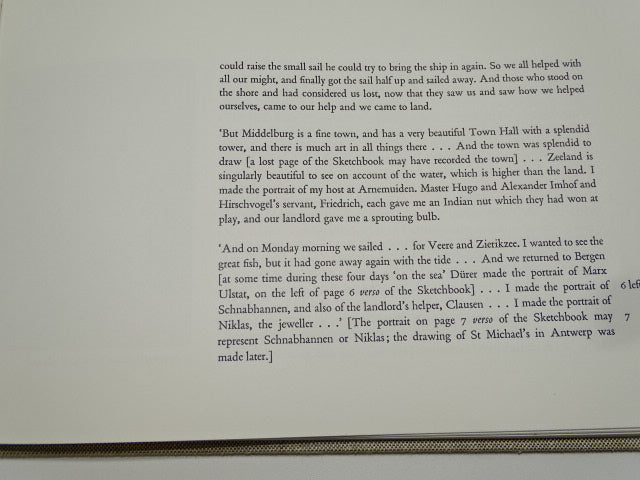 could raise the small sail he could try to bring the ship in again. So we all helped with
all our might, and finally got the sail half up and sailed away. And those who stood on
the shore and had considered us lost, now that they saw us and saw how we helped
ourselves, came to our help and we came to land.
'But Middelburg is a fine town, and has a very beautiful Town Hall with a splendid
tower, and there is much art in all things there . . . And the town was splendid to
draw [a lost page of the Sketchbook may have recorded the town] . . . Zeeland is
singularly beautiful to see on account of the water, which is higher than the land. I
made the portrait of my host at Arnemuiden. Master Hugo and Alexander Imhof and
Hirschvogel's servant, Friedrich, each gave me an Indian nut which they had won at
play, and our landlord gave me a sprouting bulb.
'And on Monday morning we sailed . . . for Veere and Zierikzee. I wanted to see the
great fish, but it had gone away again with the tide . . . And we returned to Bergen
[at some time during these four days 'on the sea' Dürer made the portrait of Marx
Ulstat, on the left of page 6 verso of the Sketchbook] . . . I made the portrait of 6 left
Schnabhannen, and also of the landlord's helper, Clausen . . . I made the portrait of
Niklas, the jeweller . . .' [The portrait on page 7 verso of the Sketchbook may 7
represent Schnabhannen or Niklas; the drawing of St Michael's in Antwerp was
made later.]